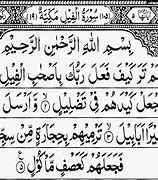 (١٠٥) سُوْرَةُ الْفِيْلِ مَكِّيَّةٌ (١٩)
بِسْمِ اللّٰهِ الرَّحْمٰنِ الرَّحِيْمِ
تَرَ كَيْفَ فَعَلَ رَبُّكَ بِاَصْحٰبِ الْفِيْلِ
كَيْدَهُمْ فِيْ تَضْلِيْلٍ ۙ﴿٢﴾ وَّاَرْسَلَ
اَبَابِيْلَ ۙ﴿٣﴾ تَرْمِيْهِمْ بِحِجَارَةٍ مِّنْ
فَجَعَلَهُمْ كَعَصْفٍ مَّاْكُوْلٍ ﴿٥﴾